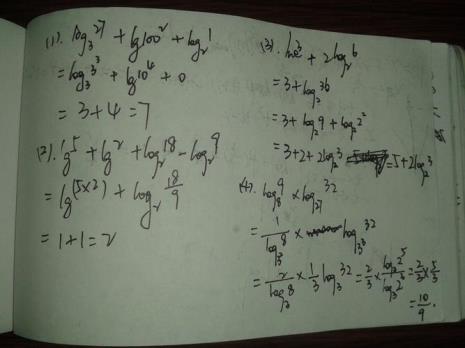 (1). log₃27 + lg100² + log₂1
= log₃3³ + lg10⁴ + 0
= 3+4=7
(2). lg5 + lg2 + log₂18 - log₂9
= lg(5×2) + log₂ 18/9
= 1+1=2
(3). lne³ + 2log₂6
= 3+log₂36
= 3+log₂9 + log₂2²
= 3+2+2log₂3 =5+2log₂3
(4). log₈9 × log₂₇32
= 1/log₉8 × log₃³32
= 2/log₃8 × 1/3 log₃32 = 2/3 × log₃2⁵/log₃2³ = 2/3 × 5/3
= 10/9.